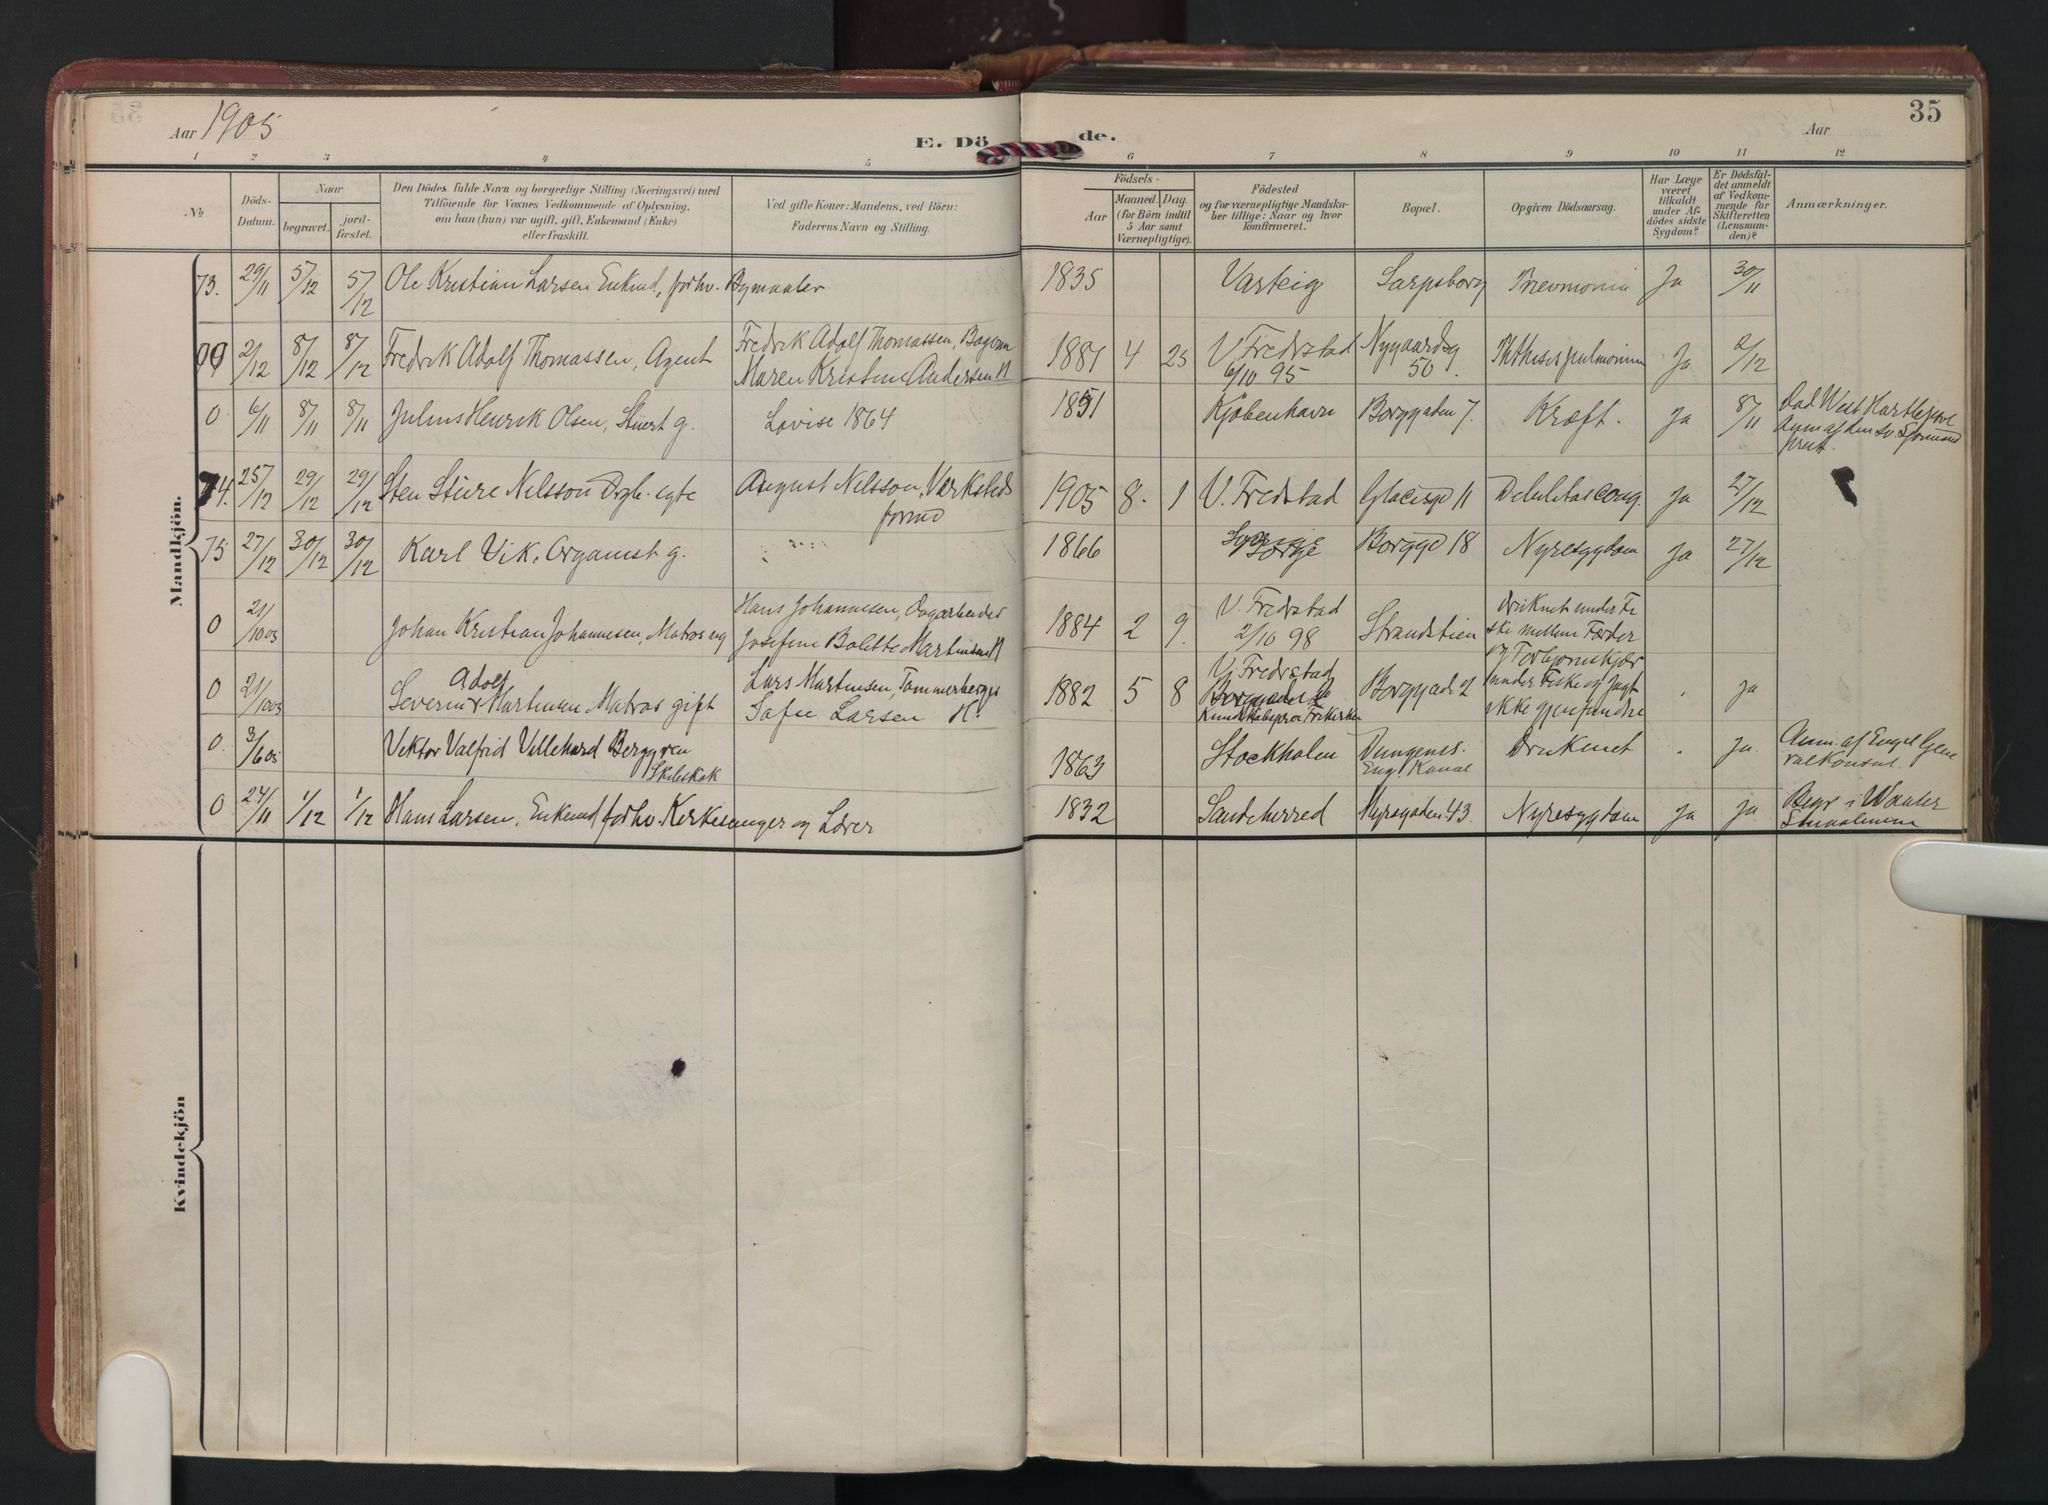 35
Aar 1905
E. Dö
de.
Aar
1 2 3 4 5 6 7 8 9 10 11 12
No
Döds-
Datum.
Naar
begravet.
jord-
fæstet.
Den Dödes fulde Navn og borgerlige Stilling (Næringsvei) med
Tilföiende for Voxnes Vedkommende af Oplysning,
om han (hun) var ugift, gift, Enkemand (Enke)
eller fraskilt.
Ved gifte Koner: Mandens, ved Börn:
Faderens Navn og Stilling.
Födsels-
Aar
Maaned. Dag.
(for Börn indtil
5 Aar samt
Værnepligtige).
Födested
og for værnepligtige Mandska-
ber tillige: Naar og hvor
konfirmeret.
Bopæl.
Opgiven Dödsaarsag.
Har Læge
været
tilkaldt
under Af-
dödes sidste
Sygdom?
Er Dödsfal-
det anmeldt
af Vedkom-
mende for
Skifteretten
(Lensman-
den)?
Anmærkninger.
Mandkjön.
73. 29/11 5/12 5/12 Ole Kristian Larsen Enkmd, forhv. Bymaaler 1835 Varteig Sarpsborg Pneumonia Ja 30/11
2/12 8/12 8/12 Fredrik Adolf Thomassen, Agent Fredrik Adolf Thomassen,
Maren Kristine Andersen 1881 4 25 V. Fredrstad
6/10 95 Nygaardsg
50 Phthisis pulmonum Ja 2/12
0 6/11 8/11 8/11 Julius Henrik Olsen, Stuert g. Lovise 1864 1851 Kjöbenhavn Borggaden 7. Kræft. Ja 8/11 Död West Hartlepool
Anm af den sv. Sjömand
prest.
74. 25/12 29/12 29/12 Sten Sture Nilsson Drgb. egte August Nilsson, Værksteds
formd 1905 8 1 V. Fredstad Glacisgd 11 Debilitas cong. Ja 27/12
75 27/12 30/12 30/12 Karl Vik, Organist g. 1866 Sverige Borggd 18 Nyresygdom Ja 27/12
0 21/10 05 Johan Kristian Johannesen, Matros ug Hans Johannesen, Dagarbeider
Josefine Bolette Martinsen 1884 2 9. V. Fredrstad
2/10 98 Strandstien druknet under Fi
ske mellem Færder
og Torbjørnskjær
0 21/10 05 Severin Adolf Martinsen Matros gift Lars Martinsen, Tömmerberger
Sofie Larsen 1882 5 8 V. Fredrstad Borggade 2 under Fiske og Jagt
ikke gjenfundne . Ja
0. 3/6 05 Viktor Valfrid Villehard Berggren
Skibskok 1863 Stockholm Dungenes.
Engl Kanal Druknet . Ja. Anm. af Engel Gene
ralkonsul.
0 24/11 1/12 1/12 Hans Larsen, Enkemd forhv. Kirkesanger og Lærer 1832 Sandeherred Nyrsgaden 43. Nyresygdom Ja Ja Begr i Waaler
Smaalenene
Kvindekjön